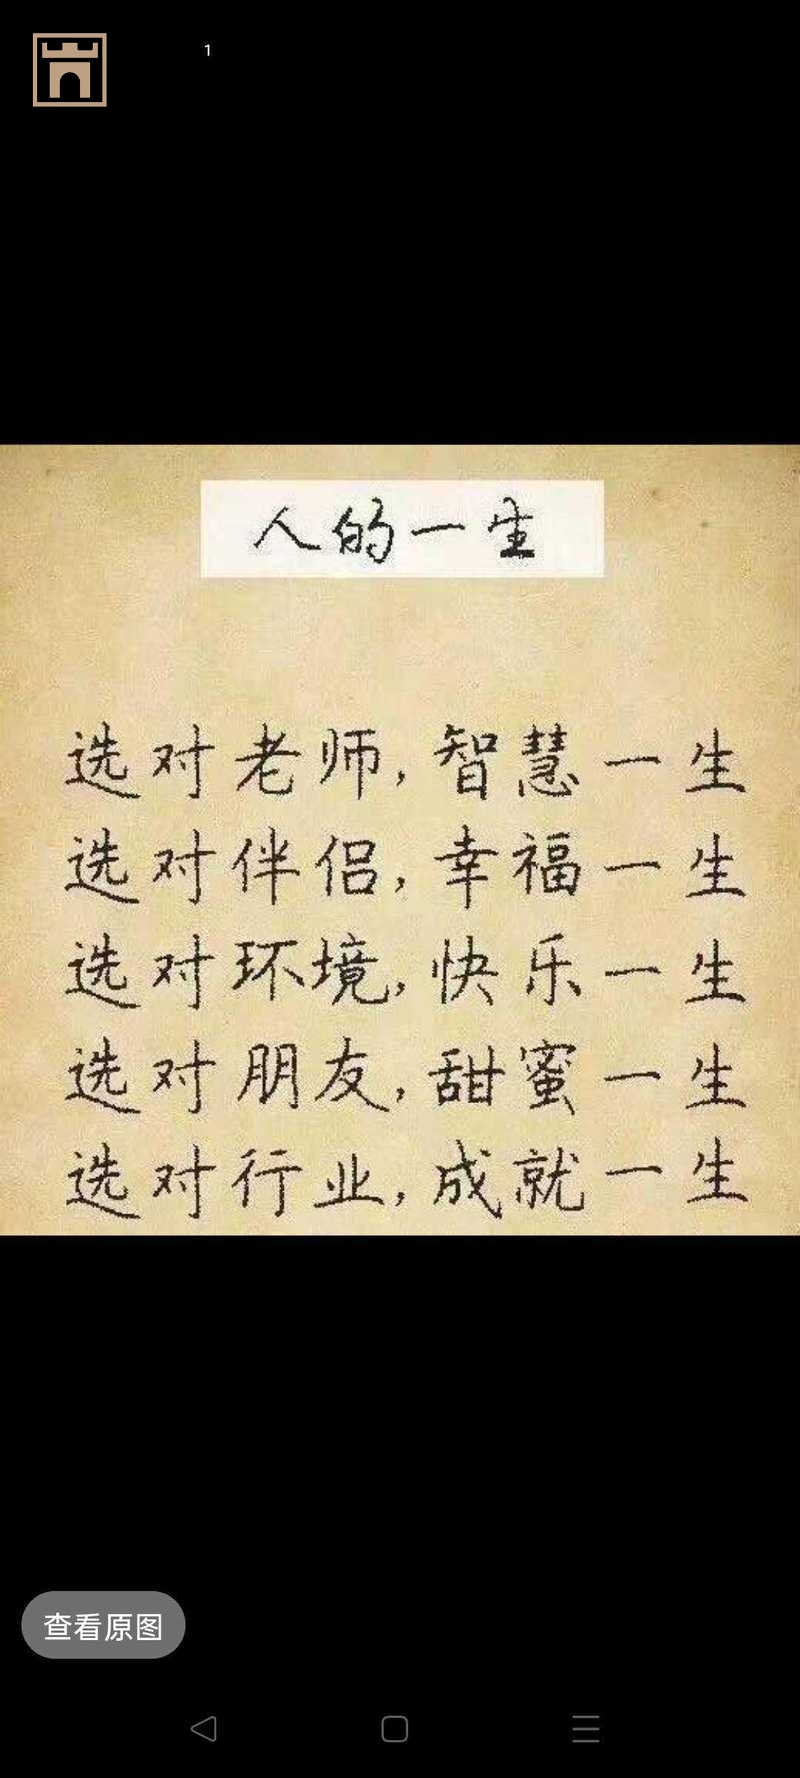 1
人的一生
选对老师,智慧一生
选对伴侣,幸福一生
选对环境,快乐一生
选对朋友,甜蜜一生
选对行业,成就一生
查看原图